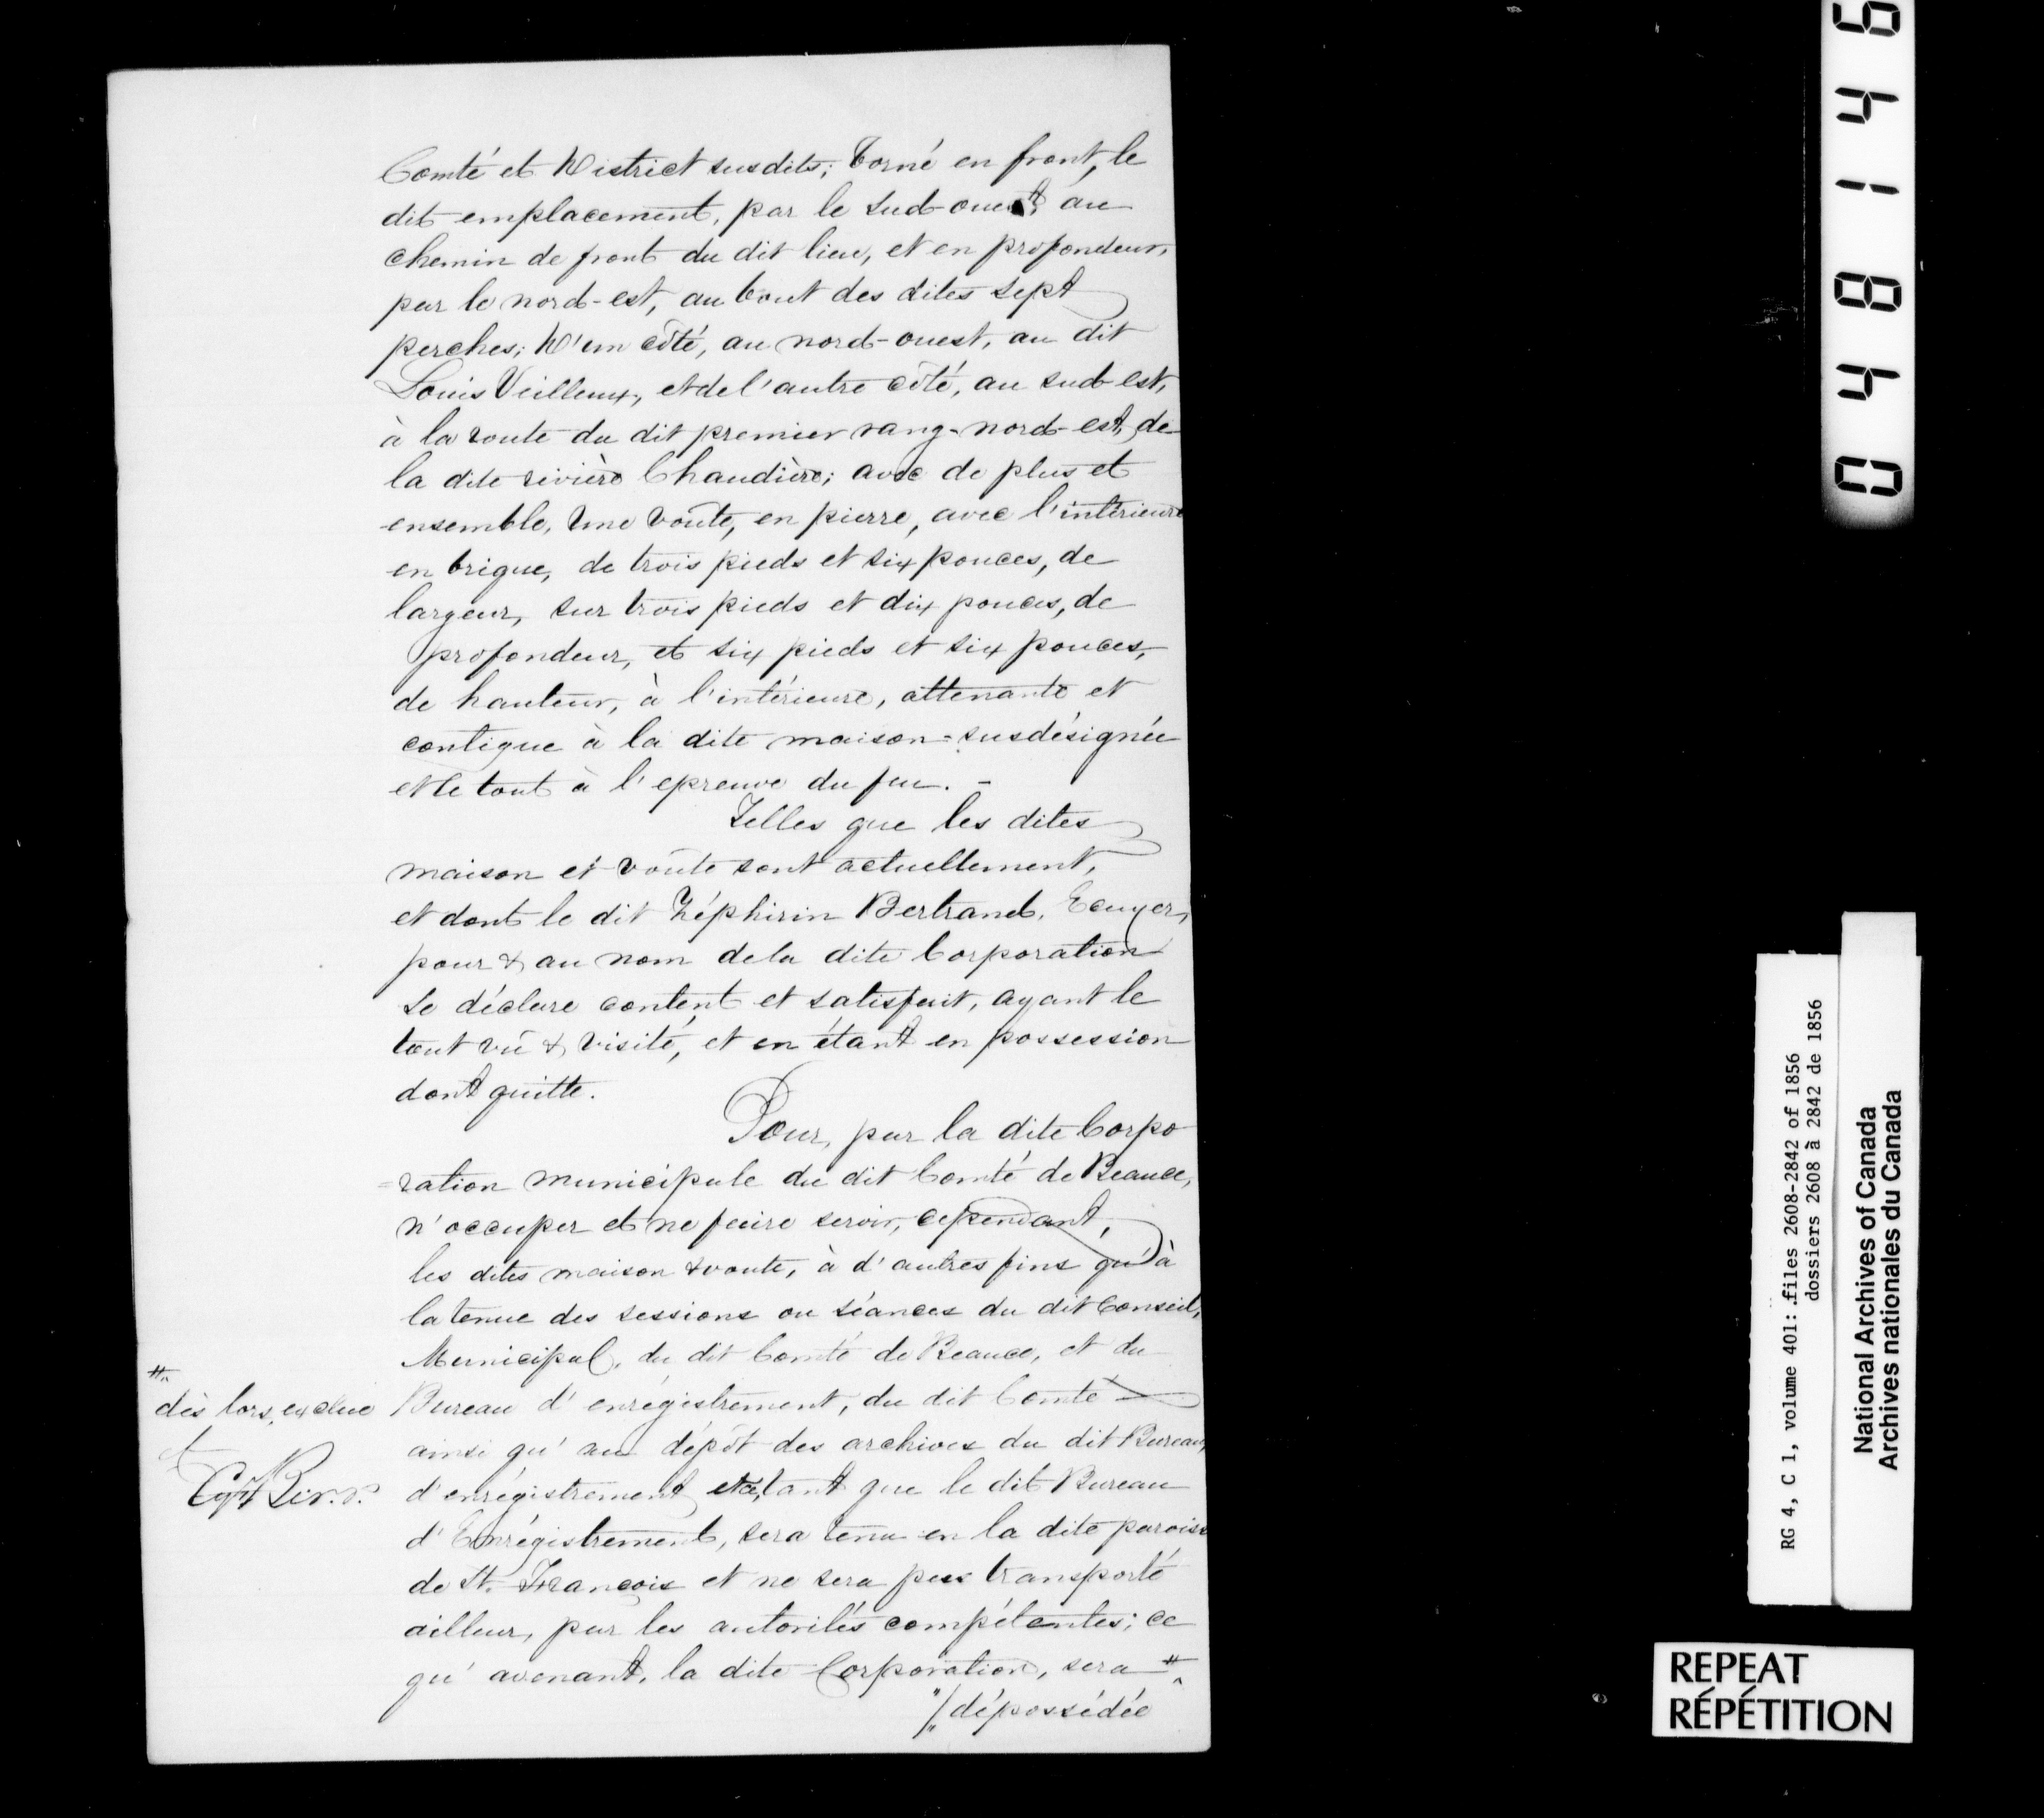 Comté et District susdits; borné en front, le
dit emplacement, par le sud-ouest, au
chemin de front du dit lieu, et en profondeur,
par le nord-est, au bout des dites sept
perches; D'un côté, au nord-ouest, au dit
Louis Veilleux, et de l'autre côté, au sud-est,
à la route du dit premier rang-nord-est, de
la dite rivière Chaudière; avec de plus et
ensemble, Une voûte, en pierre, avec l'intérieure
en brique, de trois pieds et six pouces, de
largeur, sur trois pieds et dix pouces, de
profondeur, et six pieds et six pouces,
de hauteur, à l'intérieure, attenante et
contigue à la dite maison-susdésignée
et le tout à l'epreuve du feu. -
Telles que les dites
maison et voûte sont actuellement,
et dont le dit Zéphirin Bertrand, Ecuyer,
pour & au nom de la dite Corporation
se déclare content et satisfait, ayant le
tout vû & visité, et en étant en possession
dont quitte.
Pour, par la dite Corpo
=ration municipale du dit Comté de Beauce,
n'occuper et ne faire servir, cependant,
les dites maison & voute, à d'autres fins qu'à
la tenue des sessions ou séances du dit Conseil,
Municipal, du dit Comté de Beauce, et du
Bureau d'enrégistrement, du dit Comté
ainsi qu'au dépôt des archives du dit Bureau,
d'enrégistrement et a, tant que le dit Bureau
d'Enrégistrement, sera tenu en la dite paroisse
de St. François et ne sera pas transporté
ailleur, par les autorités compétentes; ce
qu'avenant, la dite Corporation, sera #
"/dépossédée
#
dès lors, exclue
et
0 4 8 1 4 6
RG 4, C 1, volume 401: files 2608-2842 of 1856
dossiers 2608 à 2842 de 1856
National Archives of Canada
Archives nationales du Canada
REPEAT
RÉPÉTITION